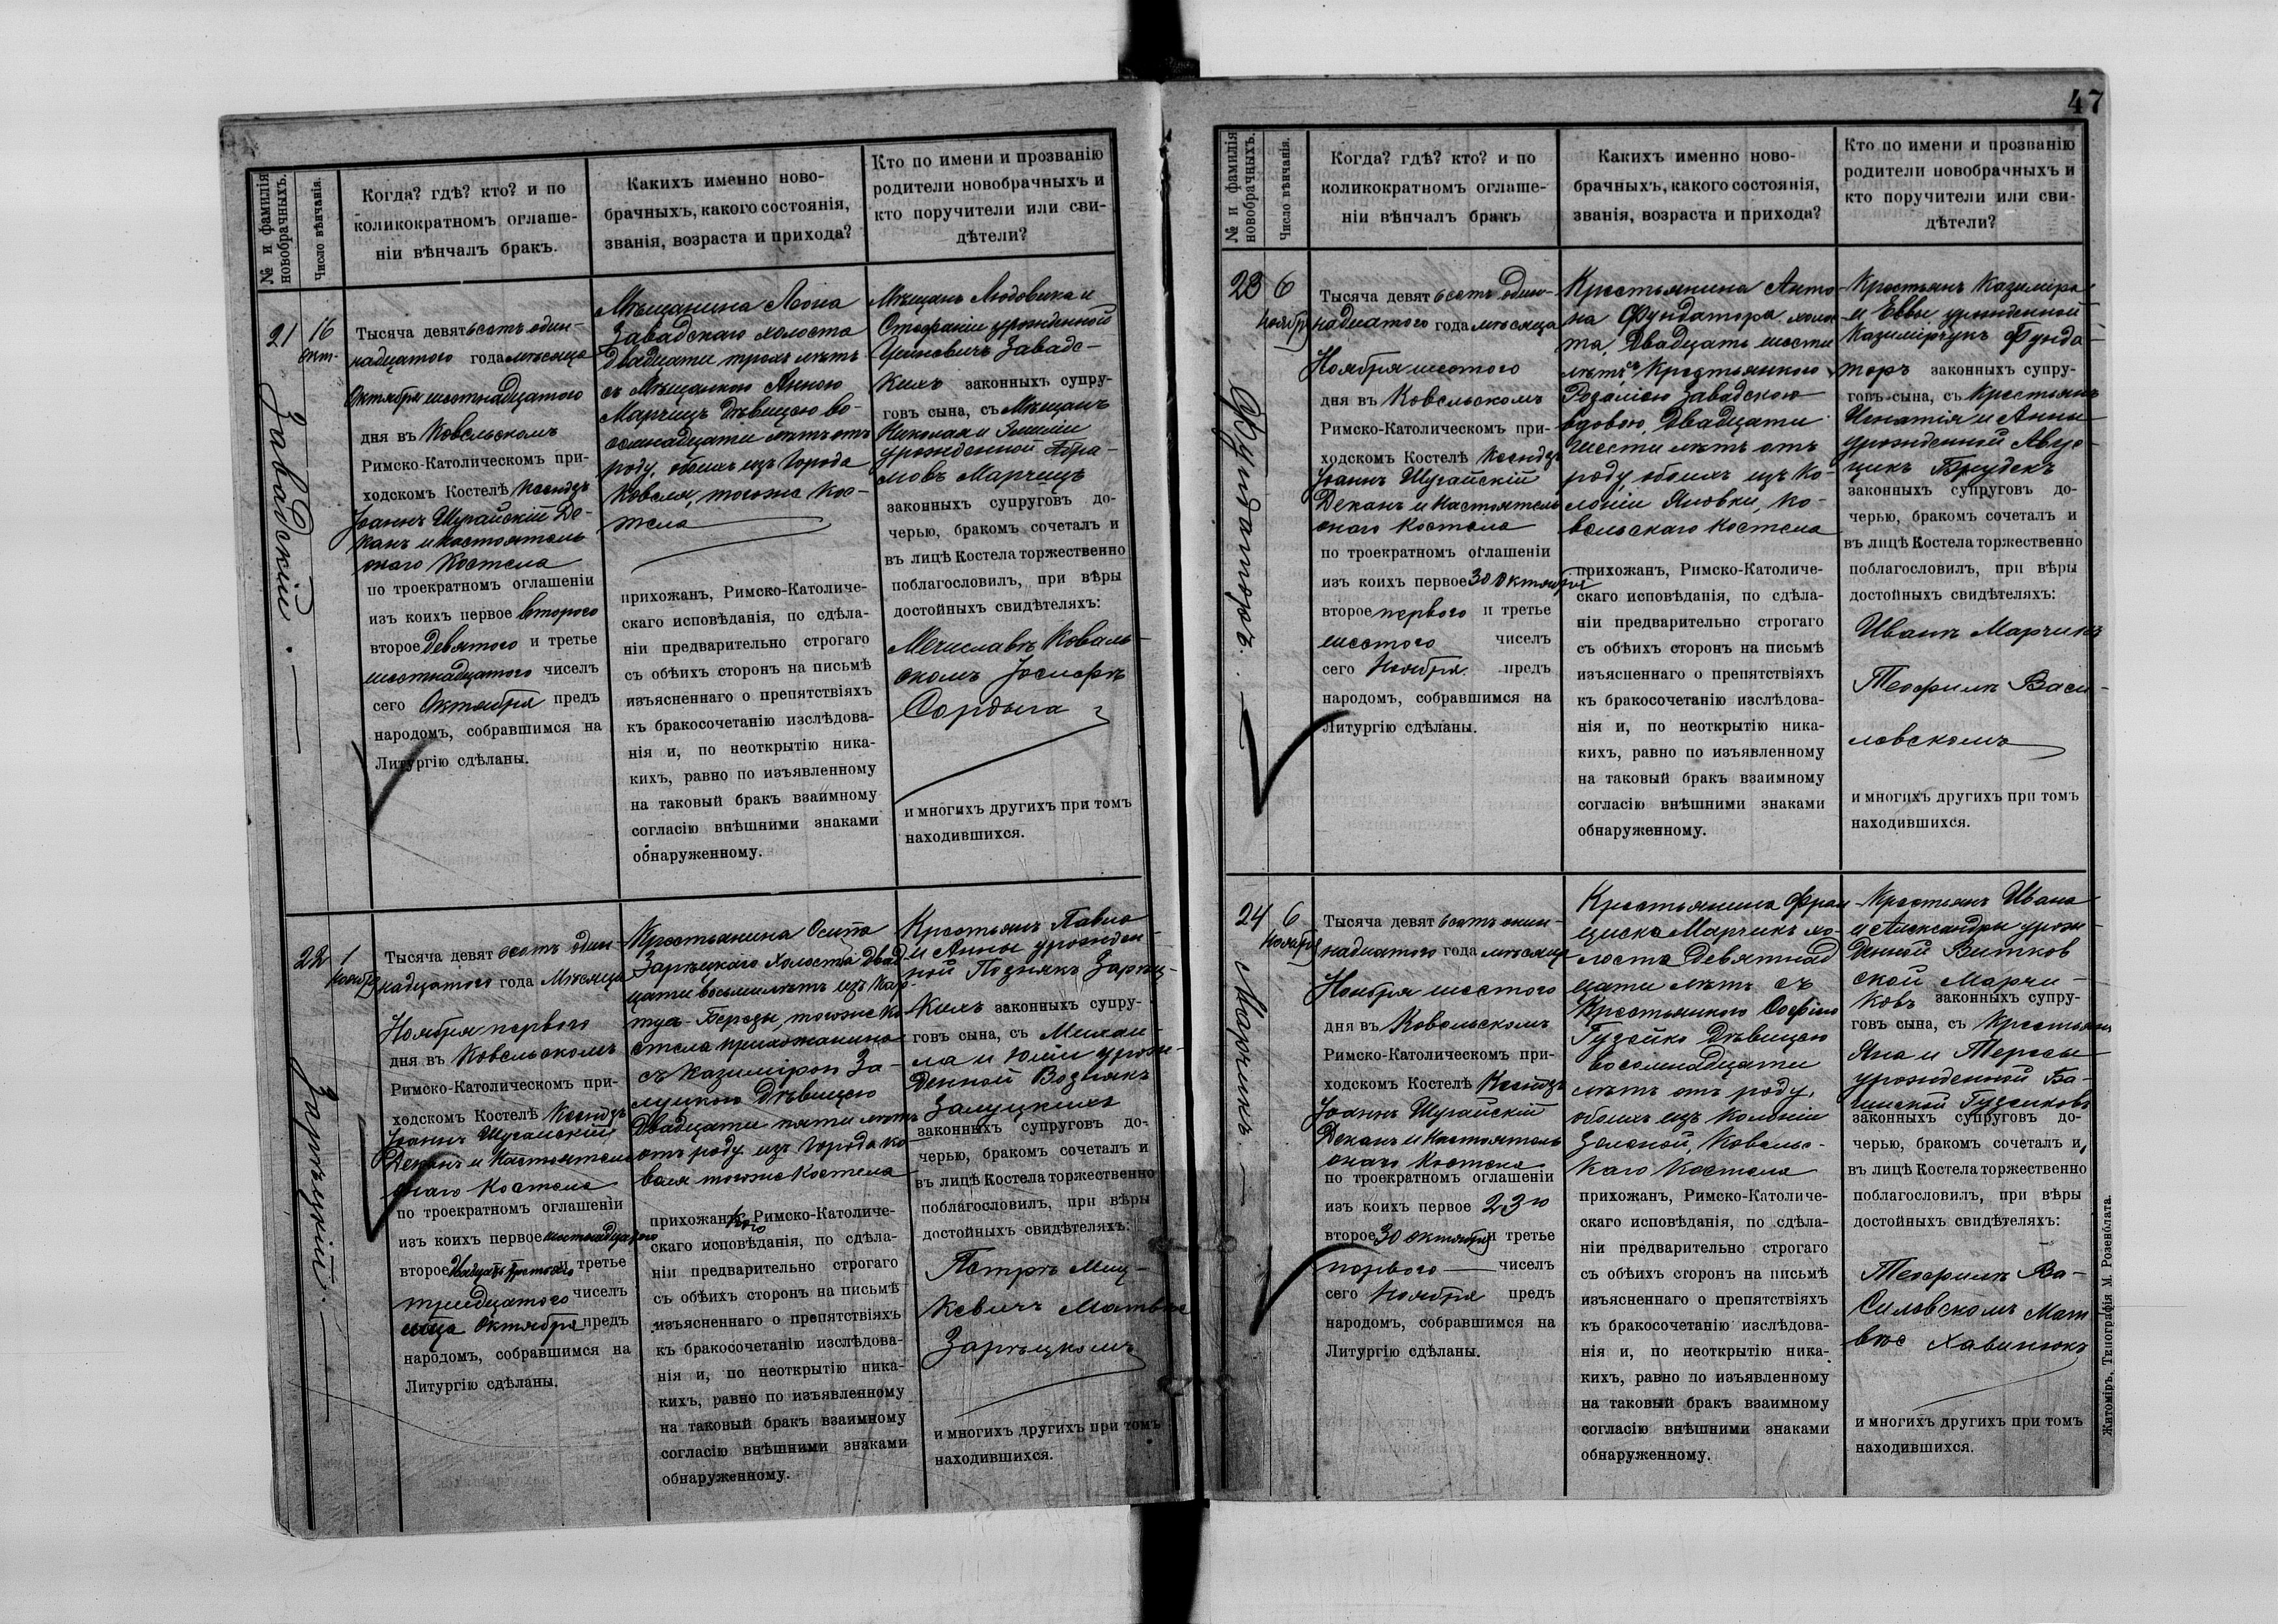 № и фамилія новобрачныхъ.
Число вѣнчанія.
Когда? гдѣ? кто? и по
коликократномъ оглаше-
ніи вѣнчалъ бракъ.
Каких именно ново-
брачныхъ, какого состоянія,
званія, возраста и прихода?
Кто по имени и прозванію
родители новобрачныхъ и
кто поручители или сви-
дѣтели?
21
16
окт-
Завадскій.
Тысяча девятьсотъ один-
надцатого года мѣсяца
Октября шестнадцатого
дня въ Ковельскомъ
Римско-Католическомъ при-
ходскомъ Костелѣ Ксендзъ
Іоаннъ Шугайскій Де-
канъ и настоятель
онаго Костела
по троекратномъ оглашеніи
изъ коихъ первое второго
второе девятого и третье
шестнадцатого чиселъ
сего Октября предъ
народомъ, собравшимся на
Литургію сдѣланы.
Мѣщанина Леона
Завадскаго холоста
двадцати трехъ лѣтъ
съ Мѣщанкою Анною
Марчищъ дѣвицею во-
семнадцати лѣтъ отъ
роду, обоихъ изъ города
Ковеля, тогоже Кос-
тела
прихожанъ, Римско-Католиче-
скаго исповѣданія, по сдѣла-
ніи предварительно строгаго
съ обѣихъ сторонъ на письмѣ
изъясненнаго о препятствіяхъ
къ бракосочетанію изслѣдова-
нія и, по неоткрытію ника-
кихъ, равно по изъявленному
на таковый бракъ взаимному
согласію внѣшними знаками
обнаруженному.
Мѣщанъ Людовика и
Стефаніи урожденной
Завадс-
кихъ законныхъ супру-
говъ сына, съ Мѣщанъ
Николая и Эмиліи
урожденной Абра-
мовъ Марчищъ
законныхъ супруговъ до-
черью, бракомъ сочеталъ и
въ лицѣ Костела торжественно
поблагословилъ, при вѣры
достойныхъ свидѣтеляхъ:
Мечиславѣ Коваль-
скомъ Іосифѣ
Сордыга
и многихъ другихъ при томъ
находившихся.
22
1
ноябр
Зарѣцкій.
Тысяча девятьсотъ один-
надцатого года Мѣсяца
Ноября первого
дня въ Ковельскомъ
Римско-Католическомъ при-
ходскомъ Костелѣ Ксендзъ
Іоаннъ Шугайскій
Деканъ и Настоятель
онаго Костела
по троекратномъ оглашеніи
изъ коихъ первое шестнадцатого
второе двадцать третьяго и третье
тридцатого чиселъ
Октября предъ
народомъ, собравшимся на
Литургію сдѣланы.
Крестьянина Осипа
Зарѣцкаго холоста двад-
цати восьми лѣтъ изъ Кар-
туз-Березы, тогоже Ко-
стела прихожанина
съ Казимірою За-
луцкою дѣвицею
двадцати пяти лѣтъ
отъ роду изъ города Ко-
веля тогоже Костела
прихожанкою Римско-Католиче-
скаго исповѣданія, по сдѣла-
ніи предварительно строгаго
съ обѣихъ сторонъ на письмѣ
изъясненнаго о препятствіяхъ
къ бракосочетанію изслѣдова-
нія и, по неоткрытію ника-
кихъ, равно по изъявленному
на таковый бракъ взаимному
согласію внѣшними знаками
обнаруженному.
Крестьянъ Павла
и Анны урожден-
ной Познякъ Зарѣц-
кихъ законныхъ супру-
говъ сына, съ Михаи-
ла и Юліи урож-
денной Вознякъ
Залуцкихъ
законныхъ супруговъ до-
черью, бракомъ сочеталъ и
въ лицѣ Костела торжественно
поблагословилъ, при вѣры
достойныхъ свидѣтеляхъ:
Петрѣ Миц-
кевичъ Матвѣе
Зарѣцкомъ
и многихъ другихъ при томъ
находившихся.
47
№ и фамилія новобрачныхъ.
Число вѣнчанія.
Когда? гдѣ? кто? и по
коликократномъ оглаше-
ніи вѣнчалъ бракъ
Какихъ именно ново-
брачныхъ, какого состоянія,
званія, возраста и прихода?
Кто по имени и прозванію
родители новобрачныхъ и
кто поручители или сви-
дѣтели?
23
6
ноябр
Фундаторъ.
Тысяча девятьсотъ один-
надцатого года мѣсяца
Ноября шестого
дня въ Ковельскомъ
Римско-Католическомъ при-
ходскомъ Костелѣ Ксендзъ
Іоаннъ Шугайскій
Деканъ и Настоятель
онаго Костела
по троекратномъ оглашеніи
изъ коихъ первое 30 октября
второе первого и третье
шестого чиселъ
сего Ноября предъ
народомъ, собравшимся на
Литургію сдѣланы.
Крестьянина Анто-
на Фундатора холос-
та, двадцать шести
лѣтъ съ Крестьянкою
Розаліею Завадскою
вдовою, двадцати
шести лѣтъ отъ
роду, обоихъ изъ Ко-
лоніи Яновки, Ко-
вельскаго Костела
прихожанъ, Римско-Католиче-
скаго исповѣданія, по сдѣла-
ніи предварительно строгаго
съ обѣихъ сторонъ на письмѣ
изъясненнаго о препятствіяхъ
къ бракосочетанію изслѣдова-
нія и, по неоткрытію ника-
кихъ, равно по изъявленному
на таковый бракъ взаимному
согласію внѣшними знаками
обнаруженному.
Крестьянъ Казиміра
и Еввы урожденной
Казимірчукъ Фунда-
торъ законныхъ супру-
говъ сына, съ Крестьянъ
Игнатія и Анны
урожденной Авгус-
цикъ
законныхъ супруговъ до-
черью, бракомъ сочеталъ и
въ лицѣ Костела торжественно
поблагословилъ, при вѣры
достойныхъ свидѣтеляхъ:
Иванѣ Марчикъ
Теофилѣ Васи-
ловскомъ
и многихъ другихъ при томъ
находившихся.
24
6
ноября
Марчикъ.
Тысяча девятьсотъ один-
надцатого года мѣсяца
Ноября шестого
дня въ Ковельскомъ
Римско-Католическомъ при-
ходскомъ Костелѣ Ксендзъ
Іоаннъ Шугайскій
Деканъ и Настоятель
онаго Костела
по троекратномъ оглашеніи
изъ коихъ первое 23го
второе 30 октября и третье
первого чиселъ
сего Ноября предъ
народомъ, собравшимся на
Литургію сдѣланы.
Крестьянина Фран-
циска Марчикъ хо-
лоста девятнад-
цати лѣтъ съ
Крестьянкою Софіею
Гузейко дѣвицею
восемнадцати
лѣтъ отъ роду,
обоихъ изъ Колоніи
Зеленой, Ковельс-
каго Костела
прихожанъ, Римско-Католиче-
скаго исповѣданія, по сдѣла-
ніи предварительно строгаго
съ обѣихъ сторонъ на письмѣ
изъясненнаго о препятствіяхъ
къ бракосочетанію изслѣдова-
нія и, по неоткрытію ника-
кихъ, равно по изъявленному
на таковый бракъ взаимному
согласію внѣшними знаками
обнаруженному.
Крестьянъ Ивана
и Александры урож-
денной Витков-
ской Марчи-
ковъ законныхъ супру-
говъ сына, съ Крестьянъ
Яна и Терезы
урожденной Ба-
законныхъ супруговъ до-
черью, бракомъ сочеталъ и
въ лицѣ Костела торжественно
поблагословилъ, при вѣры
достойныхъ свидѣтеляхъ:
Теофилѣ Ва-
силовскомъ Мат-
вѣе Хавинюкъ
и многихъ другихъ при томъ
находившихся.
Житоміръ, Типографія М. Розенблата.